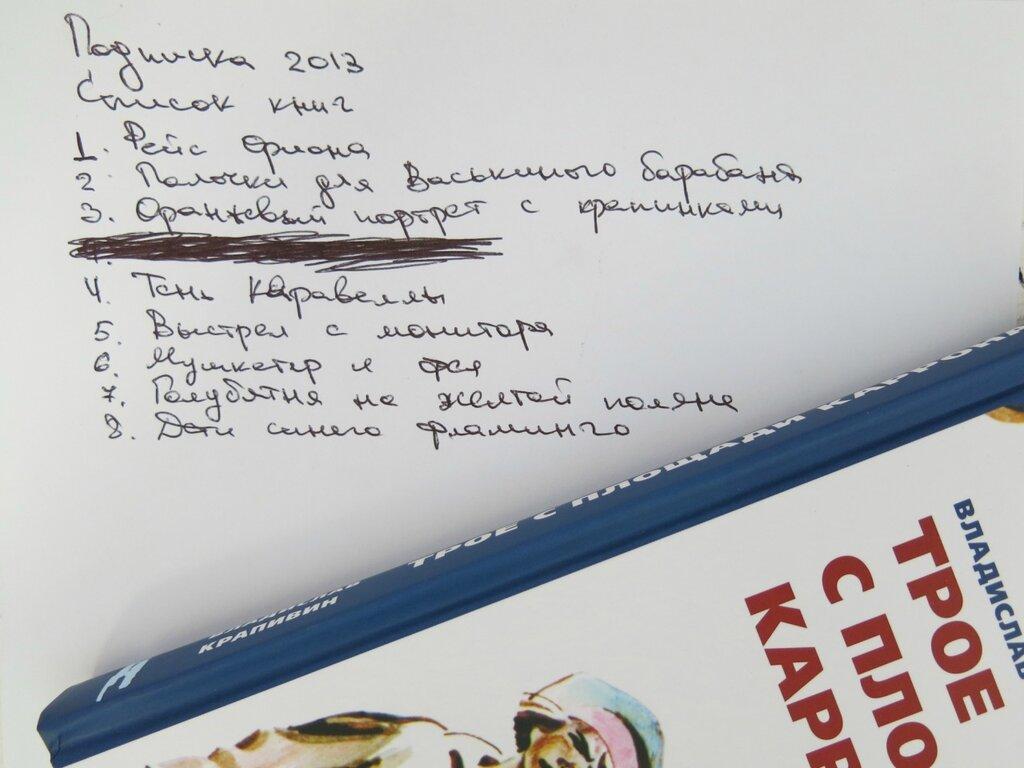 Подписка 2013
Список книг
1. Рейс Ориона
2 Палочки для Васькиного барабана
3. Оранжевый портрет с крапинками
4. Тень Каравеллы
5. Выстрел с монитора
6. Мушкетер и фея
7. Голубятня на желтой поляне
8. Дети синего фламинго
КРАПИВИН
ТРОЕ С ПЛОЩАДИ КАРРОНА
ВЛАДИСЛАВ
ТРОЕ
С ПЛО
КАРР